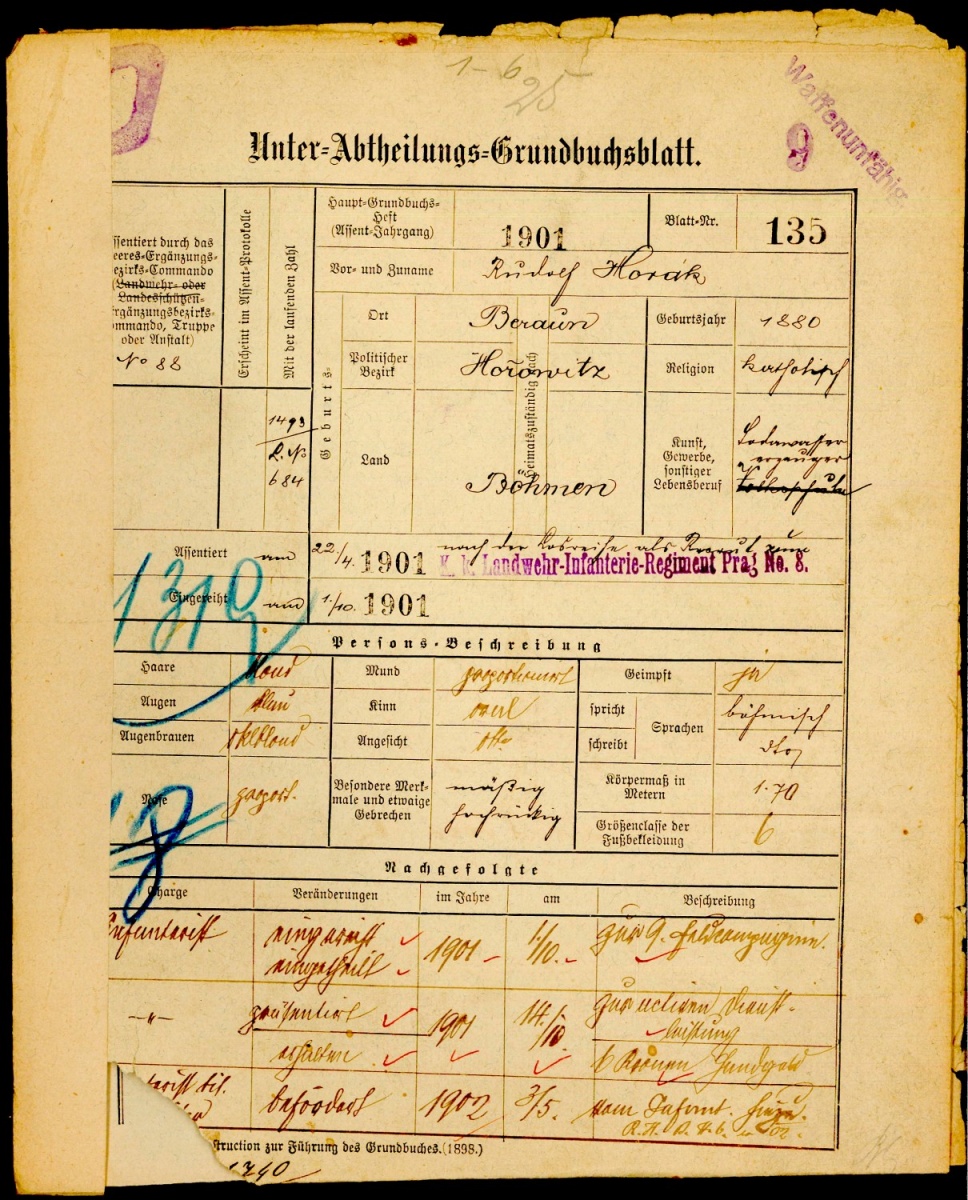 1-6
25
Waffenunfähig
9
Unter-Abtheilungs-Grundbuchsblatt.
ssentiert durch das
eeres-Ergänzungs-
ezirks-Commando
(Landwehr- oder
Landesschützen-
rgänzungsbezirks-
ommando, Truppe
oder Anstalt)
No 88
Erscheint im Assent-Protokolle
Mit der laufenden Zahl
1493
684
Haupt-Grundbuchs-
Heft
(Assent-Jahrgang)
1901
Blatt-Nr.
135
Vor- und Zuname
Rudolf Horák
Geburts-
Heimatszuständig nach
Ort
Beraun
Geburtsjahr
1880
Politischer
Bezirk
Hořowitz
Religion
katholisch
Land
Böhmen
Kunst,
Gewerbe,
sonstiger
Lebensberuf
Sodawasser
erzeuger
Assentiert
am
22./4. 1901 nach der Losreihe als Rekrut zum
K. k. Landwehr-Infanterie-Regiment Prag No. 8.
Eingereiht
am
1./10. 1901
1319
Persons-Beschreibung
Haare
blond
Mund
proportioniert
Geimpft
ja
Augen
blau
Kinn
oval
spricht
Sprachen
böhmisch
Augenbrauen
dklblond
Angesicht
dto
schreibt
dto
Nase
proport.
Besondere Merk-
male und etwaige
Gebrechen
mäßig
hochrückig
Körpermaß in
Metern
1.70
Größenclasse der
Fußbekleidung
6
Nachgefolgte
Charge
Veränderungen
im Jahre
am
Beschreibung
Infanterist
eingereiht
eingetheilt
1901
1/10.
zur 9. Feldcompagnie.
—"—
präsentiert
1901
14./10
zur activen Dienst-
leistung
erhalten
6 Kronen Handgeld
befördert
1902
3/5.
vom Infant.
truction zur Führung des Grundbuches. (1898.)
1740